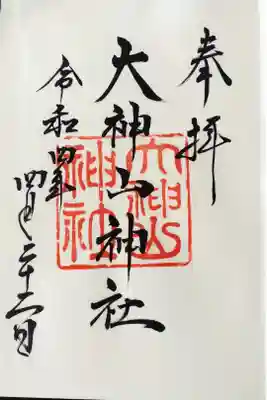 奉拝
大神山神社
令和四年
四月二十二日
大神山
神社